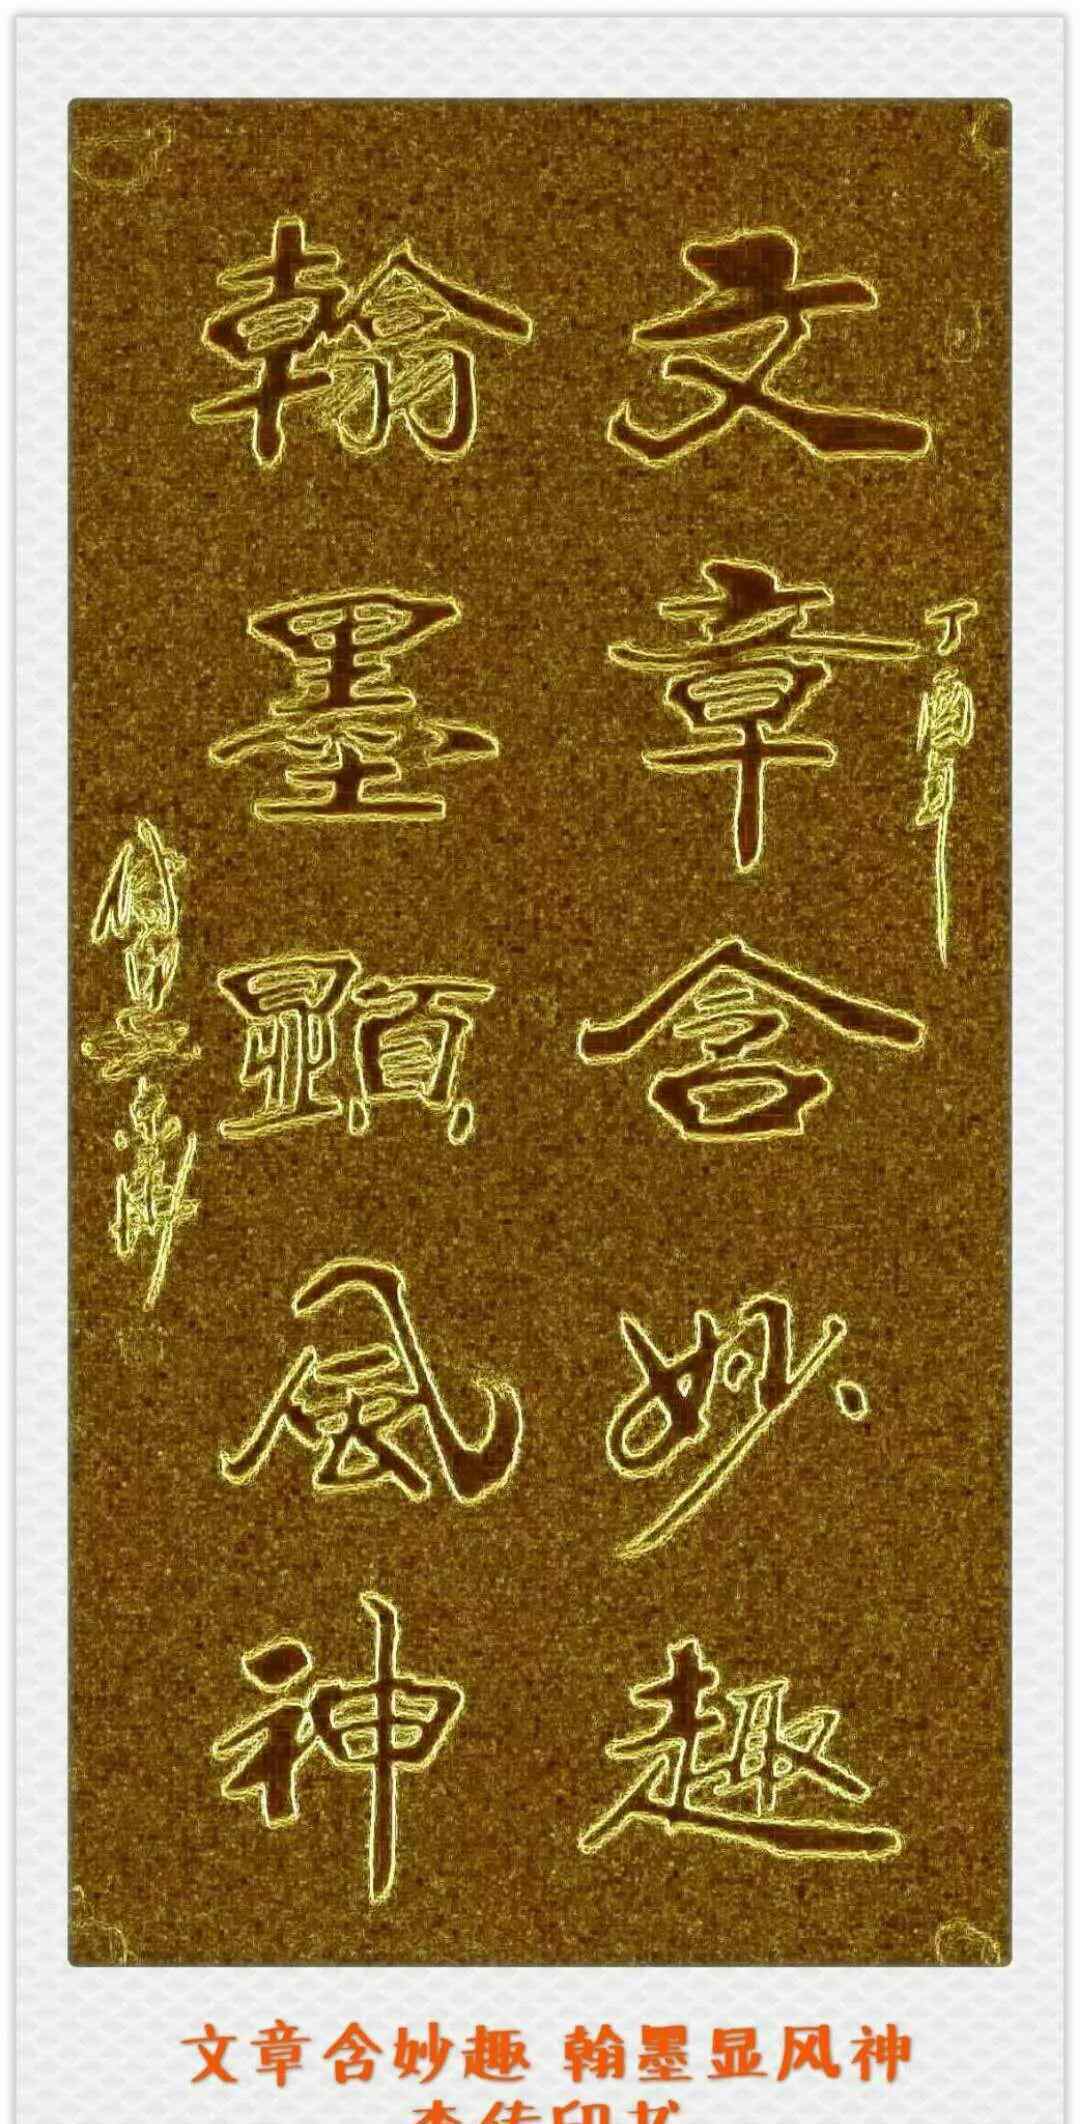 文章含妙趣
翰墨顯風神
丁酉
文章含妙趣 翰墨显风神
李传印书